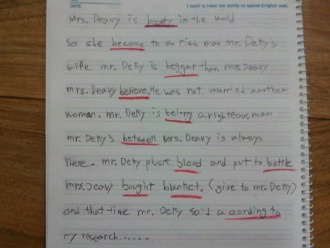 I want to have the ability to speak English well.
Mrs. Deavy is beauty in the world
So she become to a rich man mr. Detty's
wife mr. Detty is beggar than mrs Deavy
mrs. Deavy believe, He was not married another
woman. mr. Detty is being a righteous man
mr. Detty's between Mrs. Deavy is always
here. mr. Detty pluck blood and put to bottle
mrs. Deavy bought blanket, (give to mr. Detty)
and that time mr. Detty said according to
my research......